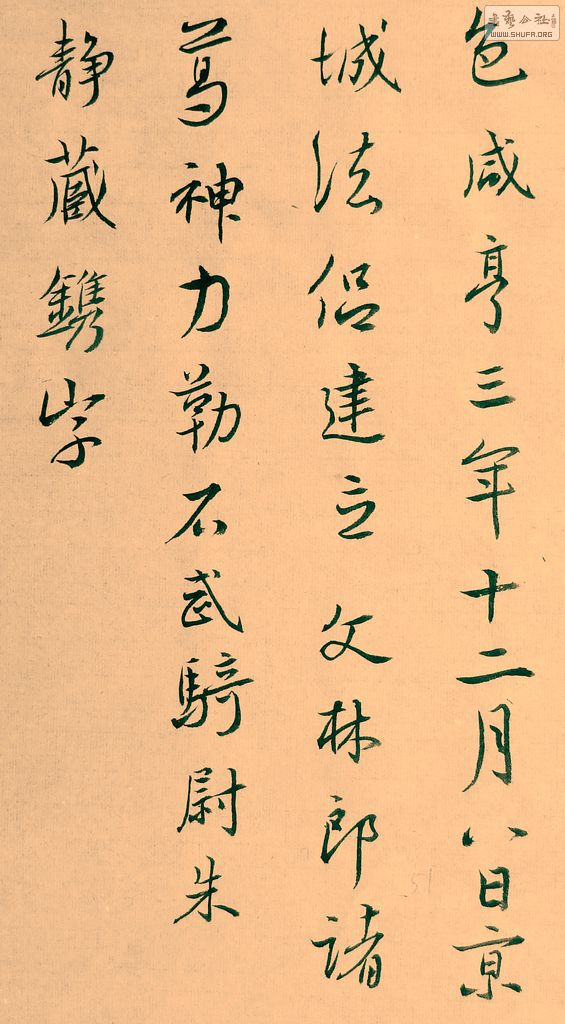 色咸亨三年十二月八日京
城法侣建立 文林郎諸
葛神力勒石武騎尉朱
静蔵鐫字
書藝公社
WWW.SHUFA.ORG